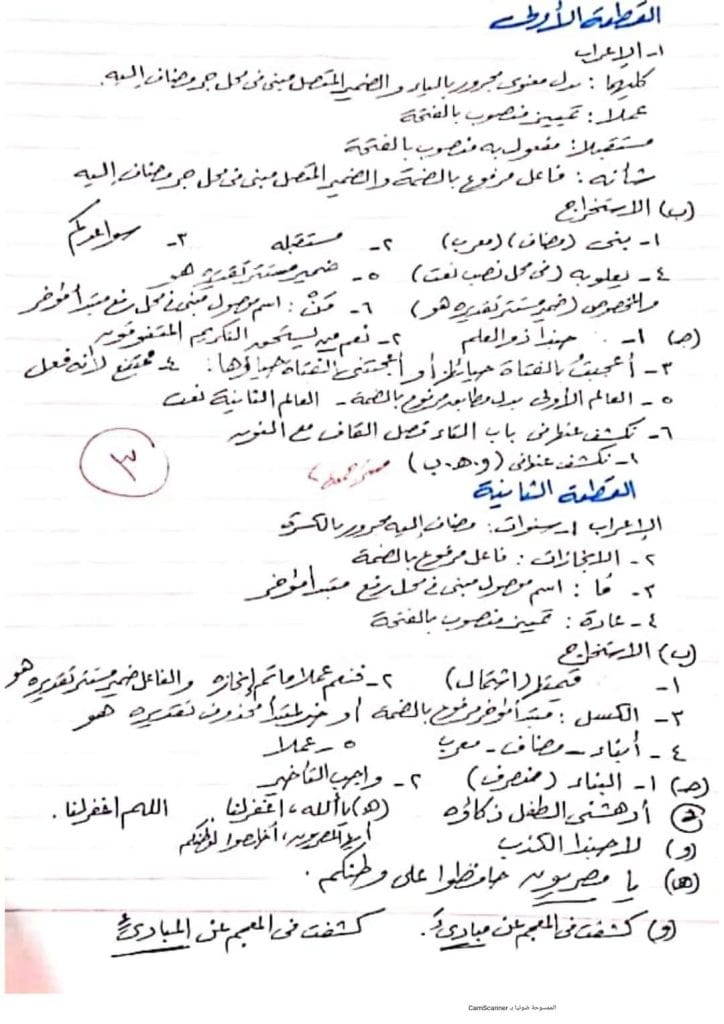 القطعة الأولى
١- الإعراب
كليهما : بدل معنوى مجرور بالياء والضمير المتصل مبنى فى محل جر مضاف إليه
عملا : تمييز منصوب بالفتحة
مستقبلا : مفعول به منصوب بالفتحة
شأنه : فاعل مرفوع بالضمة والضمير المتصل مبنى فى محل جر مضاف إليه
(ب) الاستخراج
١- بنى (مضاف) (معرب) ٢- مستقبله ٣- سواعدكم
٤- يعلو به (فى محل نصب نعت) ٥- ضمير مستتر تقديره هو
والمخصوص (ضمير مستتر تقديره هو) ٦- مَنْ : اسم موصول مبنى فى محل رفع مبتدأ مؤخر
(جـ) ١- حبذا ذو العلم ٢- نعم من يستحق التكريم المتفوقون
٣- أعجبت بالفتاة حيائها أو أعجبتنى الفتاة حياؤها : ٤- ممتنع لأنه فعل
٥- العالم الأولى بدل مطابق مرفوع بالضمة - العالم الثانية نعت
٦- تكشف عنها فى باب التاء فصل القاف مع النون
١- تكشف عنها فى (و.هـ.ب)
٣
القطعة الثانية
الإعراب ١- سنوات : مضاف إليه مجرور بالكسرة
٢- الانجازات : فاعل مرفوع بالضمة
٣- مَا : اسم موصول مبنى فى محل رفع مبتدأ مؤخر
٤- عادة : تمييز منصوب بالفتحة
(ب) الاستخراج
١- قيمتها (اشتمال) ٢- فنعم عملا ما تم إنجازه والفاعل ضمير مستتر تقديره هو
٣- الكسل : مبتدأ مؤخر مرفوع بالضمة أو خبر لمبتدأ محذوف تقديره هو
٤- أبناء - مضاف - معرب ٥- عملا
(جـ) ١- البناء (منصرف) ٢- واجب التأخير
أدهشنى الطفل ذكاؤه (هـ) يا الله، اغفر لنا . اللهم اغفر لنا .
(و) لا حبذا الكذب أيها المصريون، أخلصوا لوطنكم
(هـ) يا مصريون حافظوا على وطنكم .
(و) كشفت فى المعجم عن مبادئَ . كشفت فى المعجم عن المبادئِ
الممسوحة ضوئيا بـ CamScanner